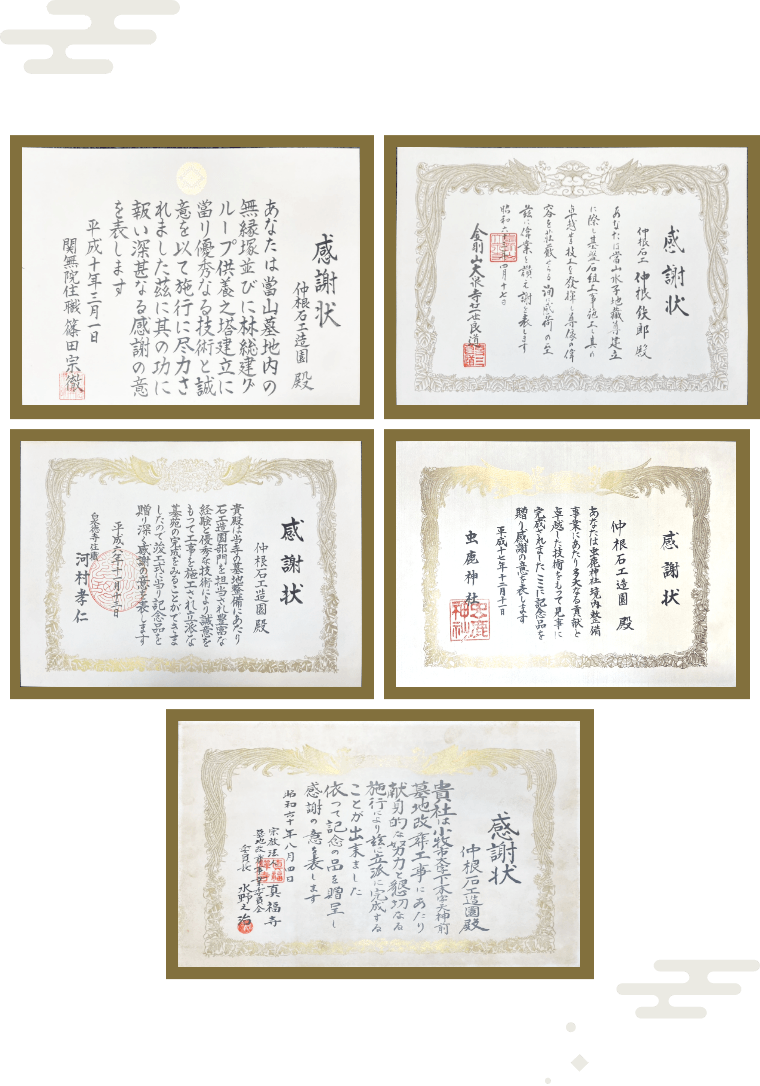 感謝状
仲根石工造園 殿
あなたは當山墓地内の
無縁塚並びに林総建グ
ループ供養之塔建立に
當り優秀なる技術と誠
意を以て施行に尽力さ
れました茲に其の功に
報い深甚なる感謝の意
を表します
平成十年三月一日
関無院住職 篠田宗徹
感謝状
仲根石工 仲根俊郎 殿
あなたは當山水子地蔵尊建立
に際し基盤石組工事施工に
卓越せる技工を発揮し尊像の偉
容を荘厳せらる
茲に偉業を讃え謝を表します
昭和 四月十七日
金剛山大泉寺
感謝状
仲根石工造園 殿
貴殿は当寺の墓地整備にあたり
石工造園部門を担当され豊富な
経験と優秀な技術により誠意を
もって工事を施工され立派な
墓苑の完成をみることができま
したので竣工式に当り記念品を
贈り深く感謝の意を表します
平成六年十一月十三日
住職
河村孝仁
感謝状
仲根石工造園 殿
あなたは虫鹿神社境内整備
事業にあたり多大なる貢献と
卓越した技術をもって見事に
完成されましたここに記念品を
贈り感謝の意を表します
平成十七年十二月十一日
虫鹿神社
感謝状
仲根石工造園殿
貴社は小牧市大字下末字天神前
墓地改葬工事にあたり
献身的な努力と懇切なる
施行により茲に立派に完成する
ことが出来ました
依って記念の品を贈呈し
感謝の意を表します
昭和六十年八月四日
宗教法人 真福寺
墓地改葬事業委員会
委員長 水野之治